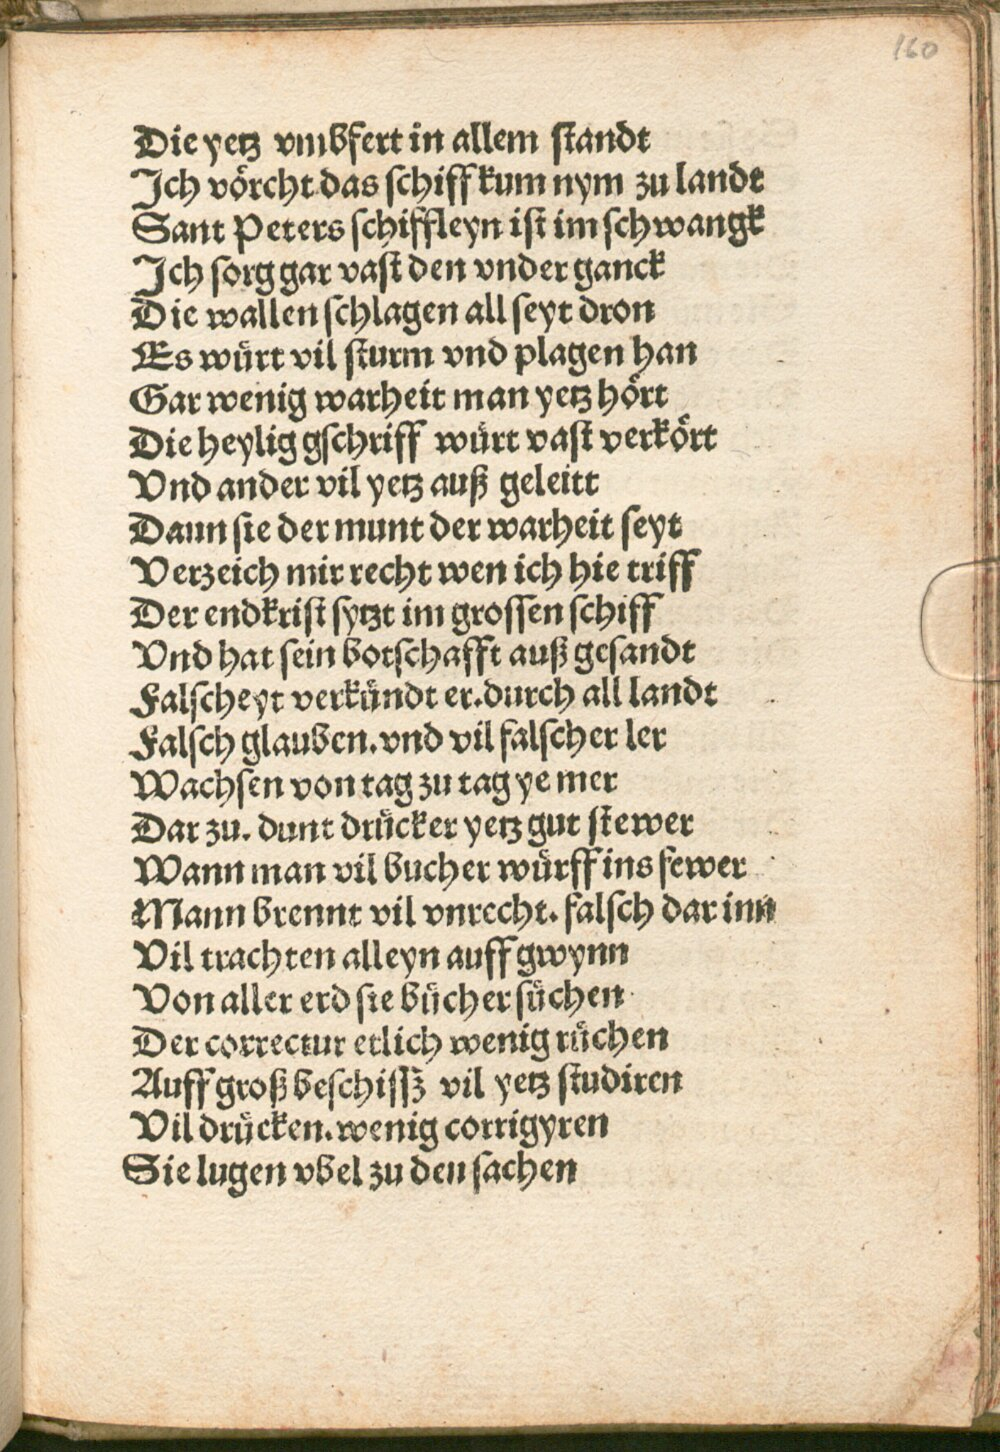 160
Die yetz vmbfert in allem standt
Ich vörcht das schiff kum nym zu landt
Sant Peters schiffleyn ist im schwangk
Ich sorg gar vast den vnder ganck
Die wallen schlagen all seyt dron
Es würt vil sturm vnd plagen han
Gar wenig warheit man yetz hört
Die heylig gschriff würt vast verkört
Vnd ander vil yetz auß geleitt
Dann sie der munt der warheit seyt
Verzeich mir recht wen ich hie triff
Der endkrist sytzt im grossen schiff
Vnd hat sein botschafft auß gesandt
Falscheyt verkündt er. durch all landt
Falsch glauben. vnd vil falscher ler
Wachsen von tag zu tag ye mer
Dar zu. dunt drücker yetz gut stewer
Wann man vil bucher würff ins fewer
Mann brennt vil vnrecht. falsch dar inn
Vil trachten alleyn auff gwynn
Von aller erd sie bücher süchen
Der correctur etlich wenig rüchen
Auff groß beschissz vil yetz studiren
Vil drücken. wenig corrigyren
Sie lugen vbel zu den sachen